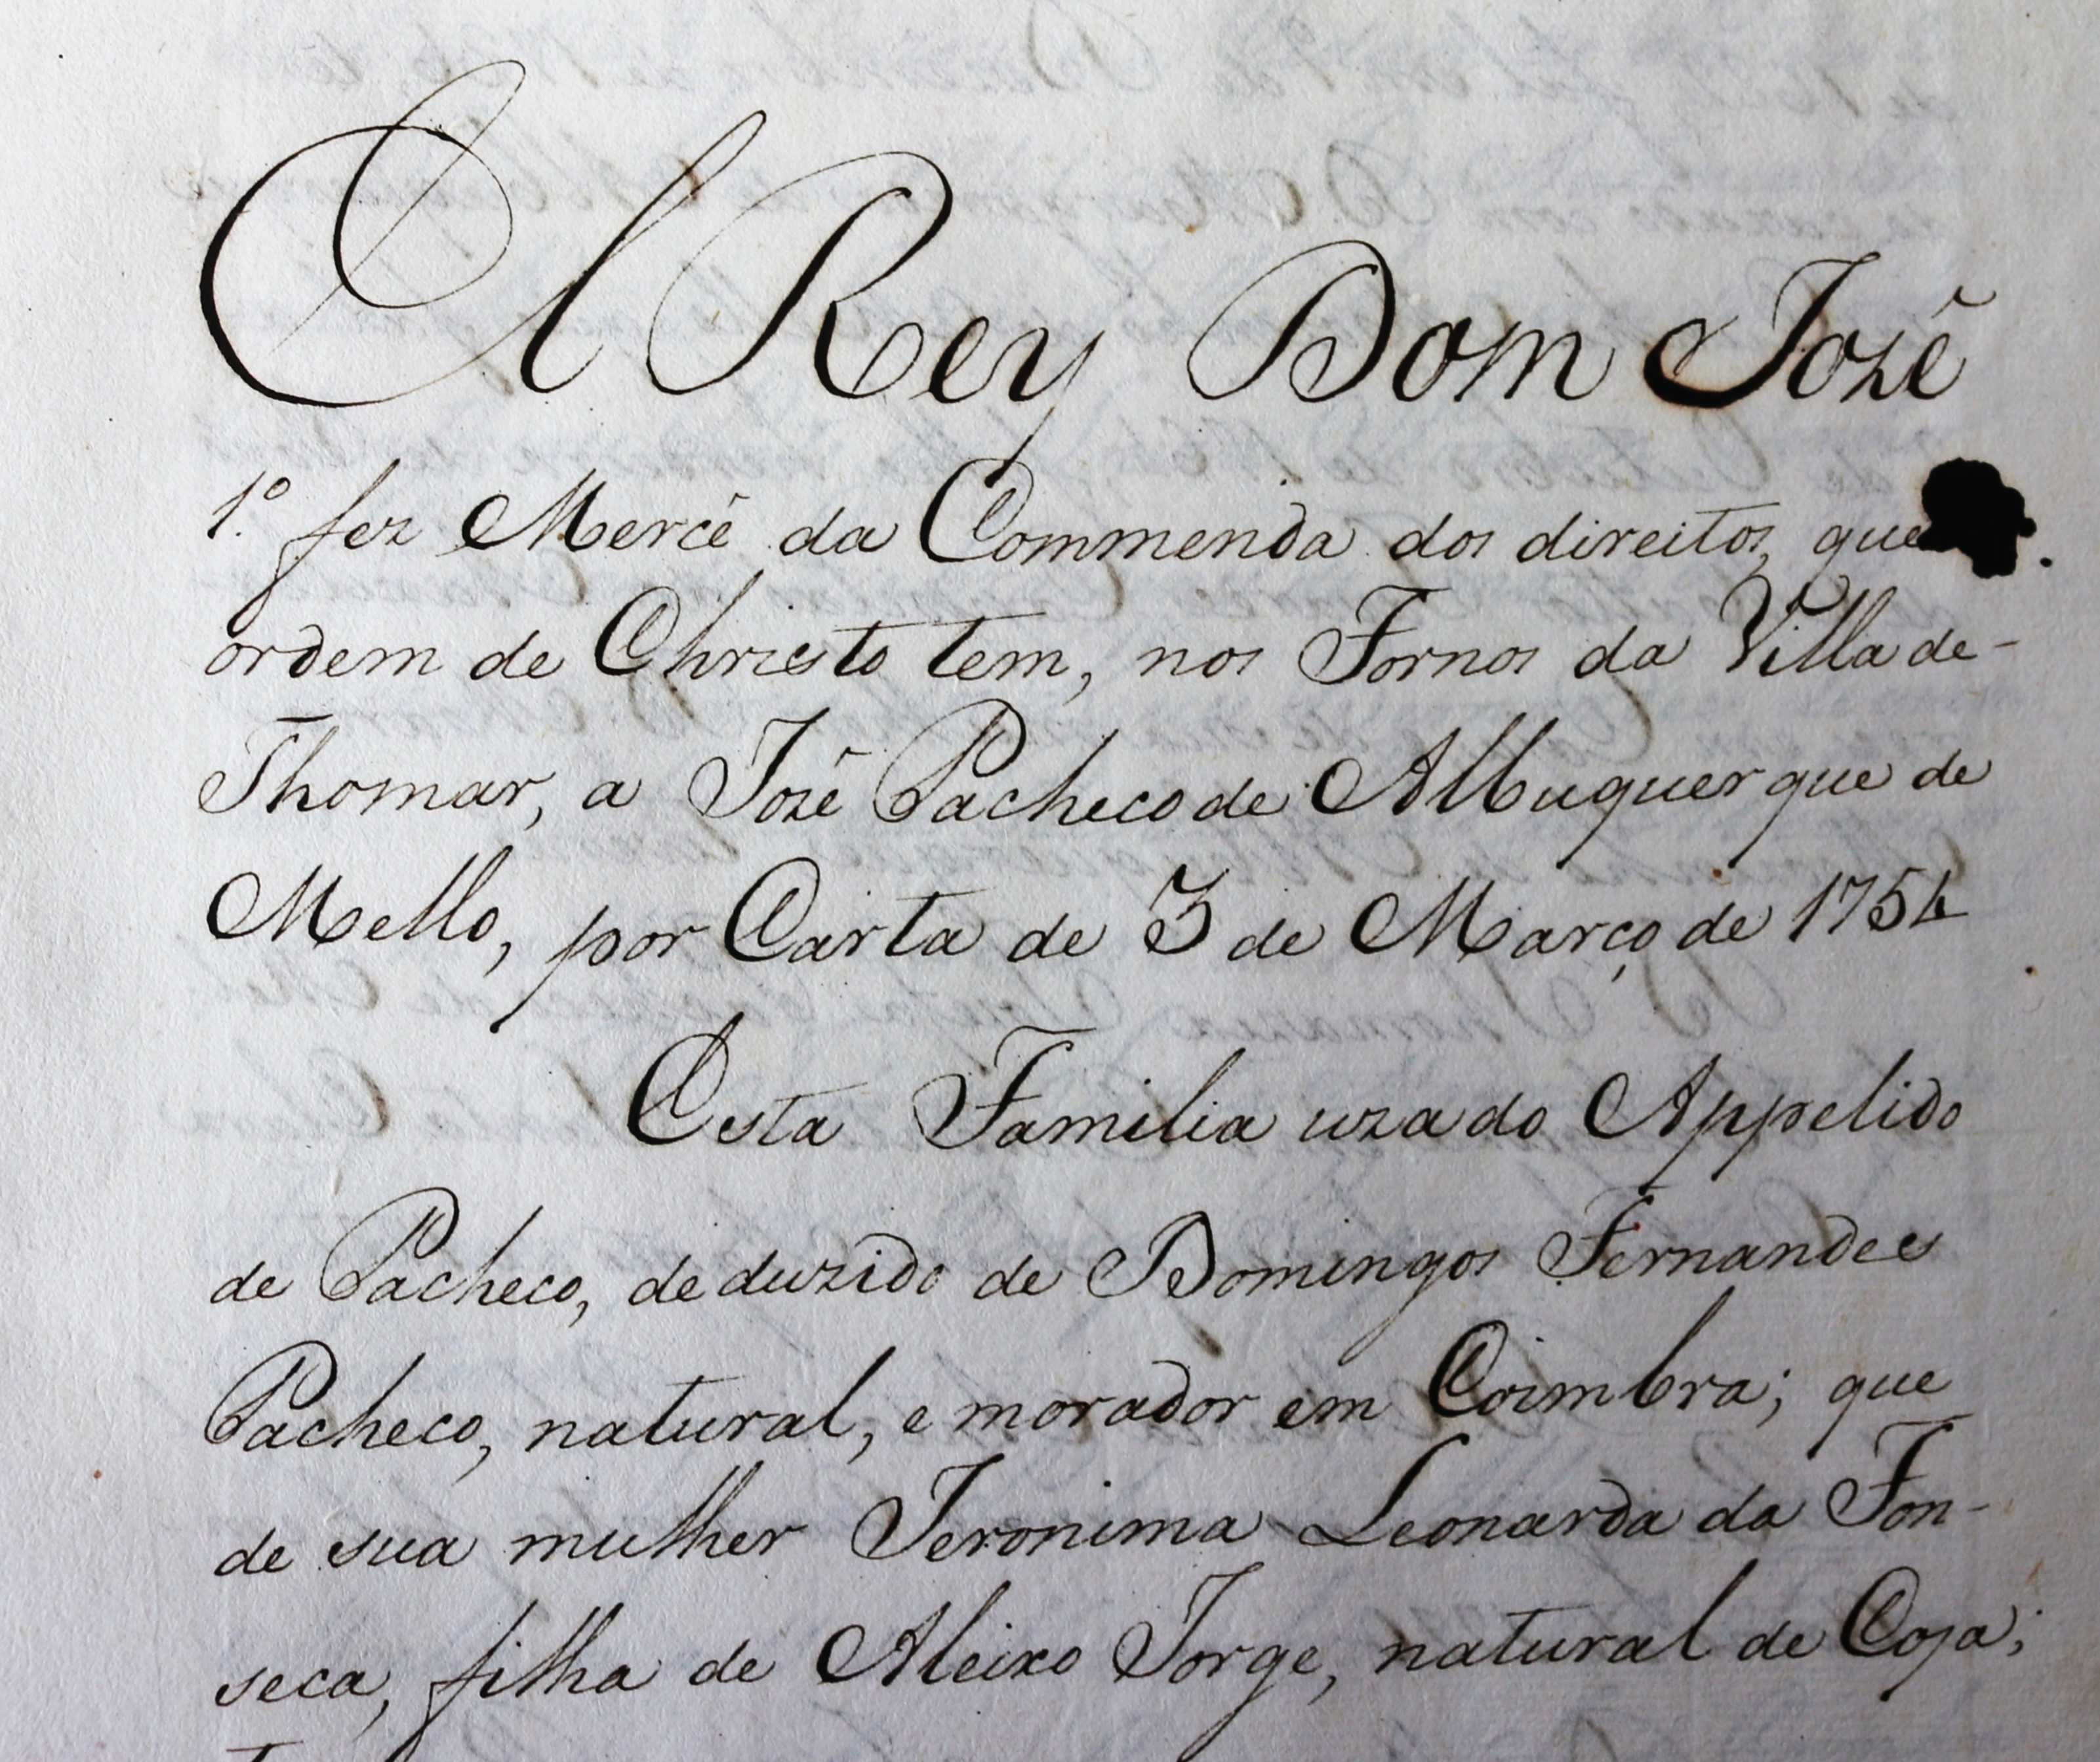 El Rey Dom Jozé
1.º fez Mercê da Commenda dos direitos, que
ordem de Christo tem, nos Fornos da Villa de-
Thomar, a Jozé Pacheco de Albuquerque de
Mello, por Carta de 3 de Março de 1754
Esta Familia uza do Appelido
de Pacheco, deduzido de Domingos Fernandes
Pacheco, natural, e morador em Coimbra; que
de sua mulher Jeronima Leonarda da Fon-
seca, filha de Aleixo Jorge, natural de Coja;